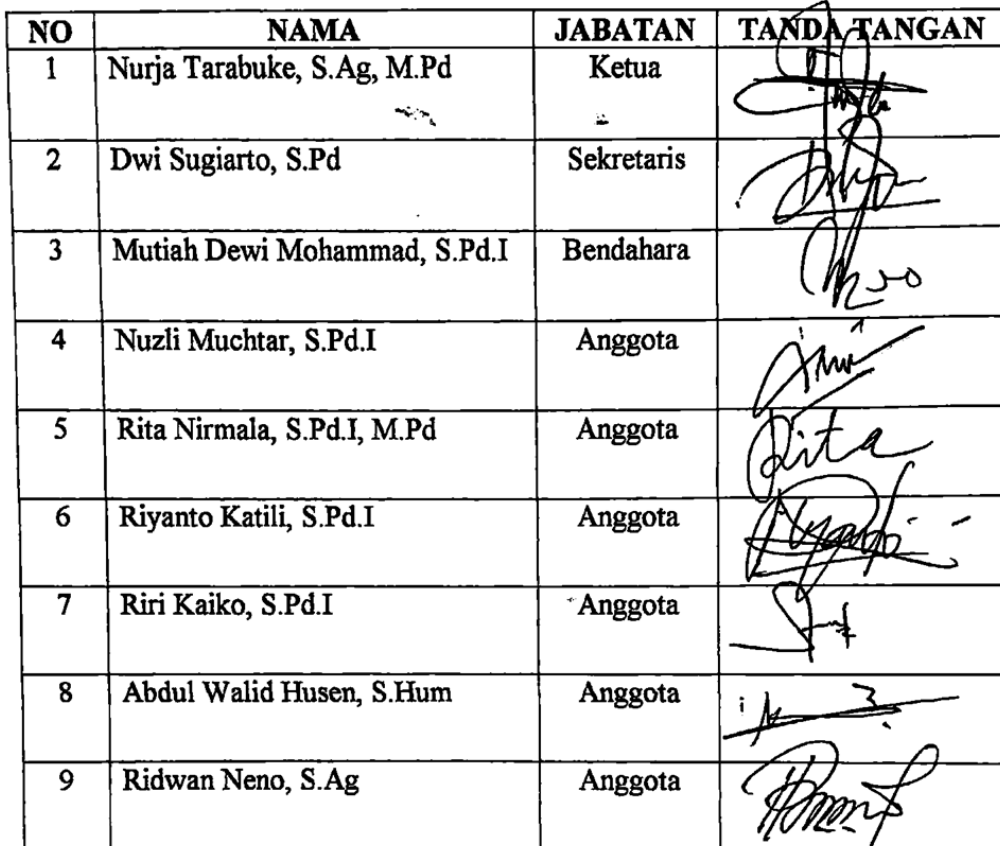 NO NAMA JABATAN TANDA TANGAN
1 Nurja Tarabuke, S.Ag, M.Pd Ketua
2 Dwi Sugiarto, S.Pd Sekretaris
3 Mutiah Dewi Mohammad, S.Pd.I Bendahara
4 Nuzli Muchtar, S.Pd.I Anggota
5 Rita Nirmala, S.Pd.I, M.Pd Anggota Rita
6 Riyanto Katili, S.Pd.I Anggota
7 Riri Kaiko, S.Pd.I Anggota
8 Abdul Walid Husen, S.Hum Anggota
9 Ridwan Neno, S.Ag Anggota